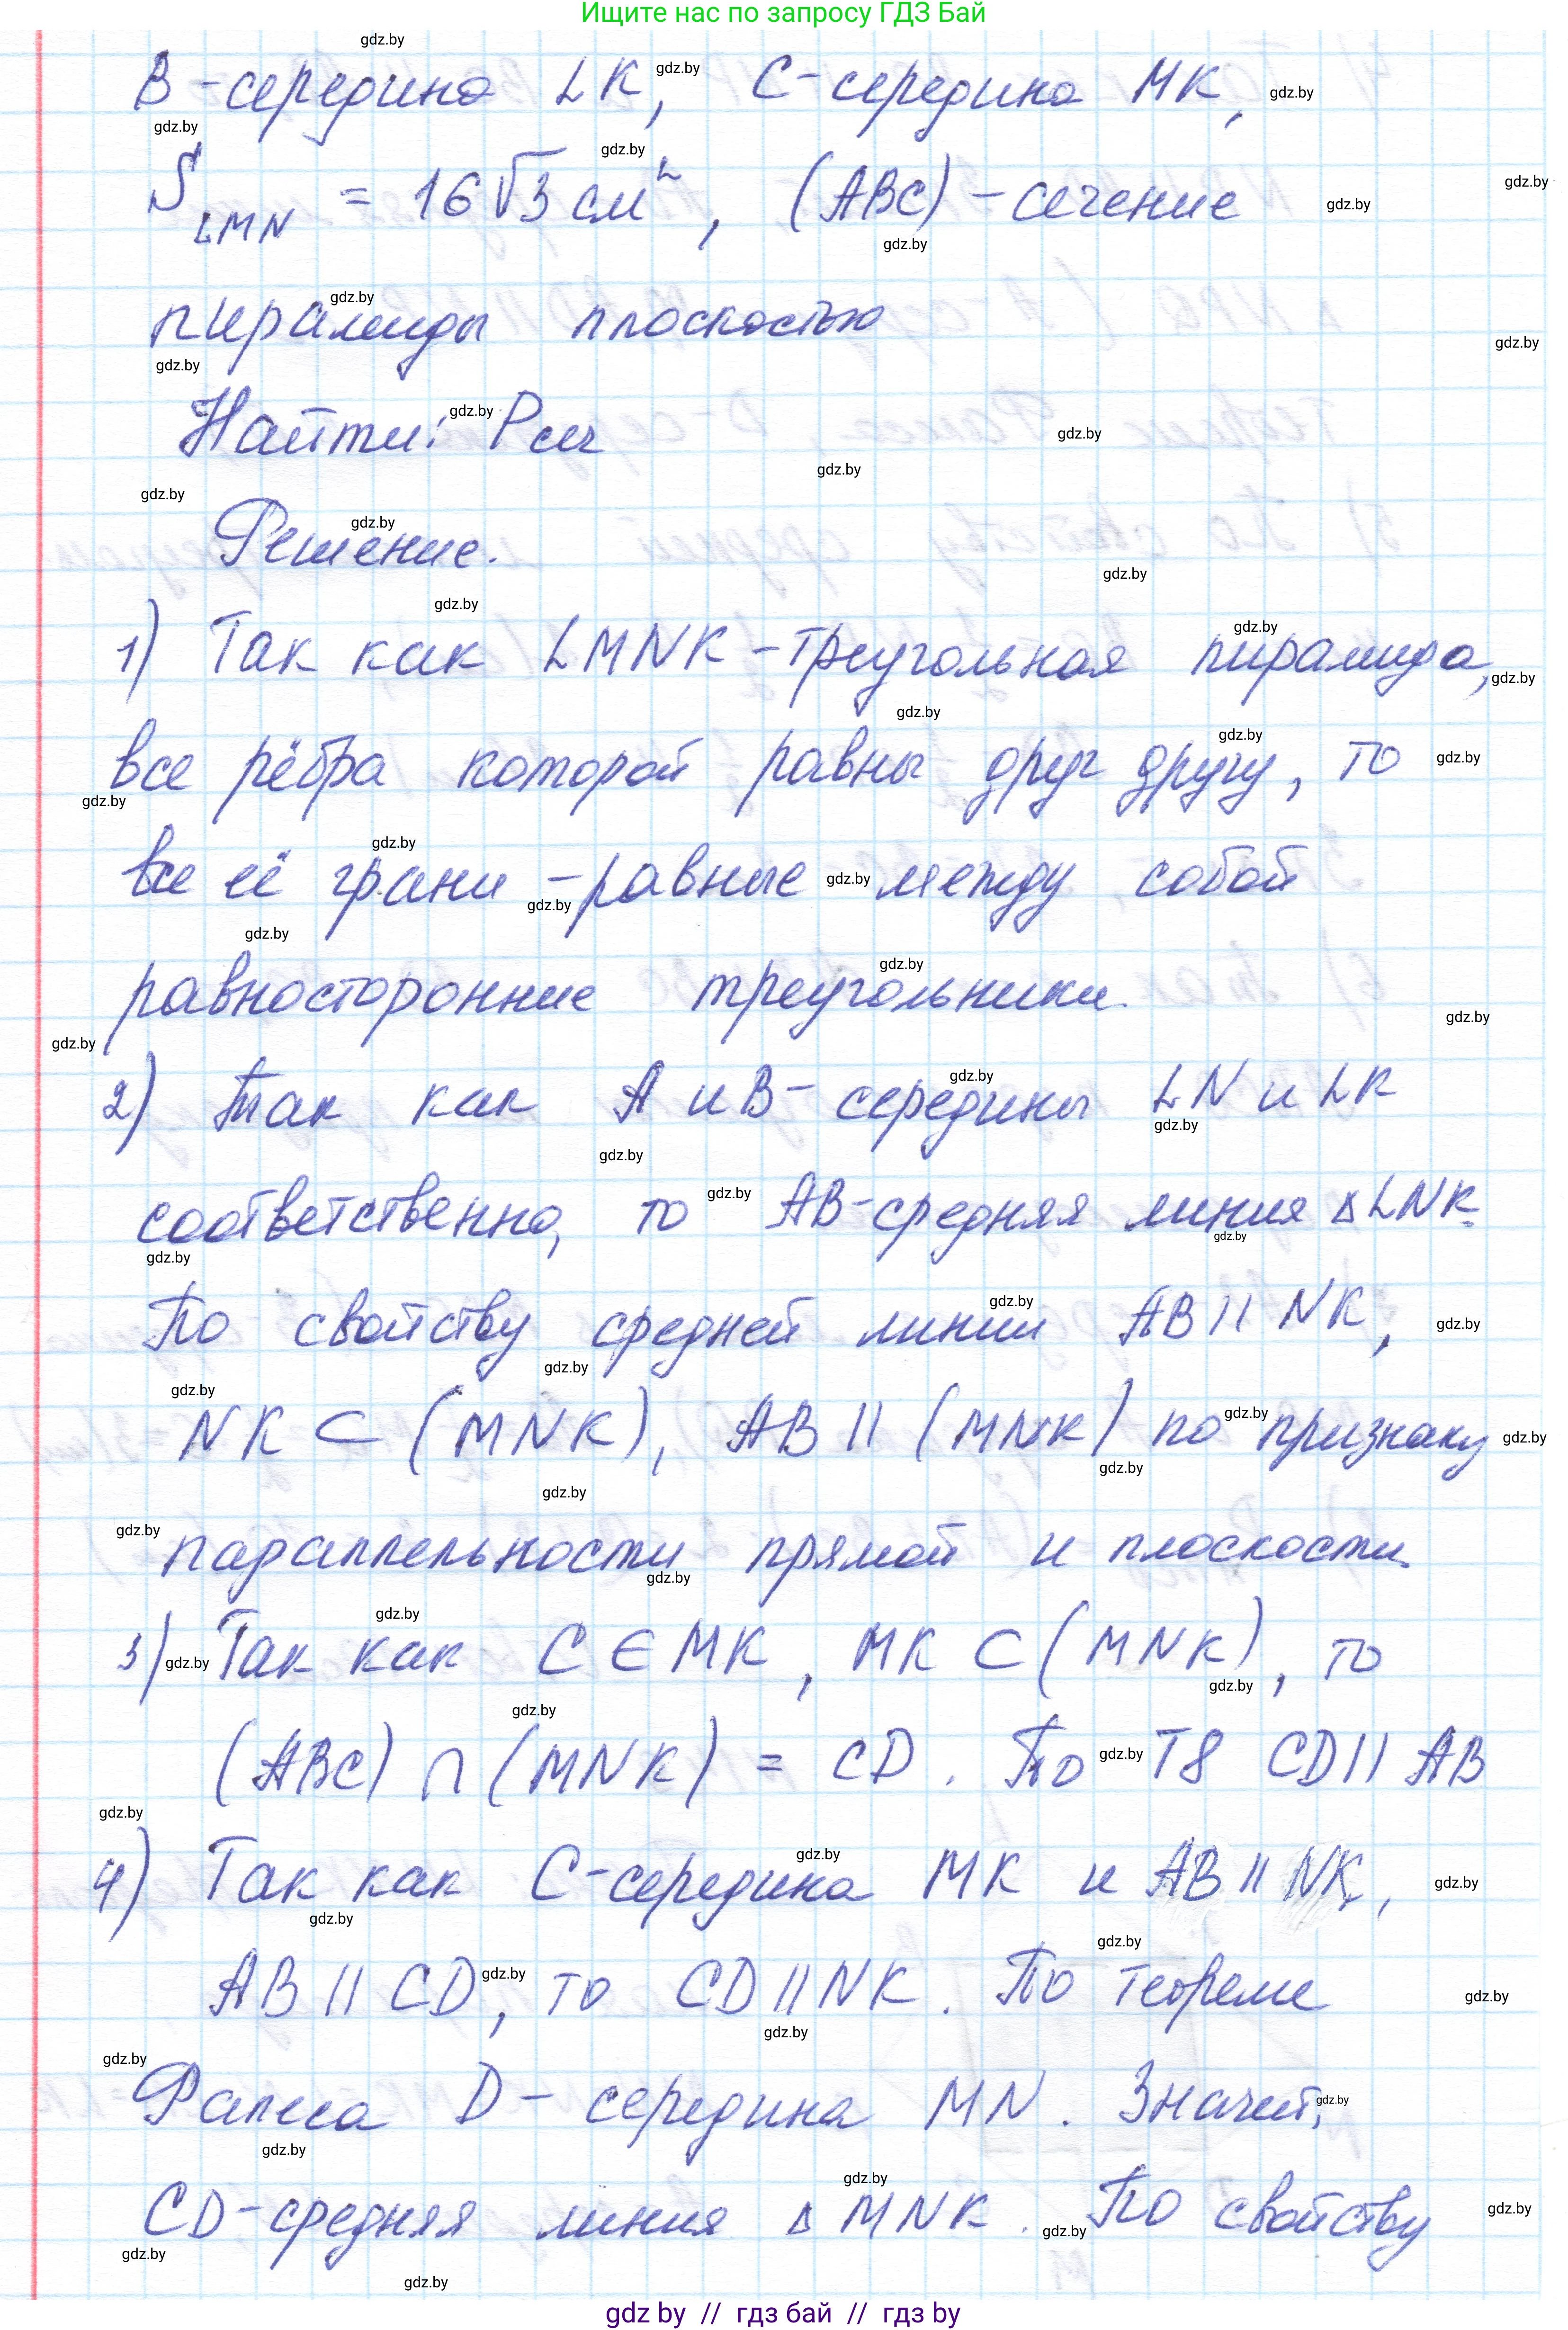 Ищите нас по запросу ГДЗ Бай
B - середина LK, C - середина MK,
S LMN = 16√3 см², (ABC) - сечение
пирамиды плоскостью
Найти: Pсеч
Решение.
1) Так как LMNK - треугольная пирамида,
все рёбра которой равны друг другу, то
все её грани - равные между собой
равносторонние треугольники.
2) Так как A и B - середины LN и LK
соответственно, то AB - средняя линия ΔLNK.
По свойству средней линии AB || NK,
NK ⊂ (MNK), AB || (MNK) по признаку
параллельности прямой и плоскости.
3) Так как C ∈ MK, MK ⊂ (MNK), то
(ABC) ∩ (MNK) = CD. По Т8 CD || AB
4) Так как C - середина MK и AB || NK,
AB || CD, то CD || NK. По теореме
Фалеса D - середина MN. Значит,
CD - средняя линия ΔMNK. По свойству
gdz by // гдз бай // гдз by